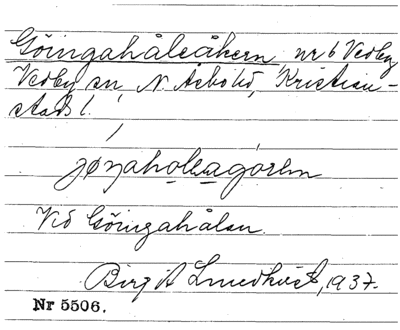 Göingahålsåkern, nr 6 Vedby
Vedby sn, N. Åsbo hd, Kristian-
stads l.
Vid Göingahålan.
Birgit Lundkvist, 1937.
Nr 5506.